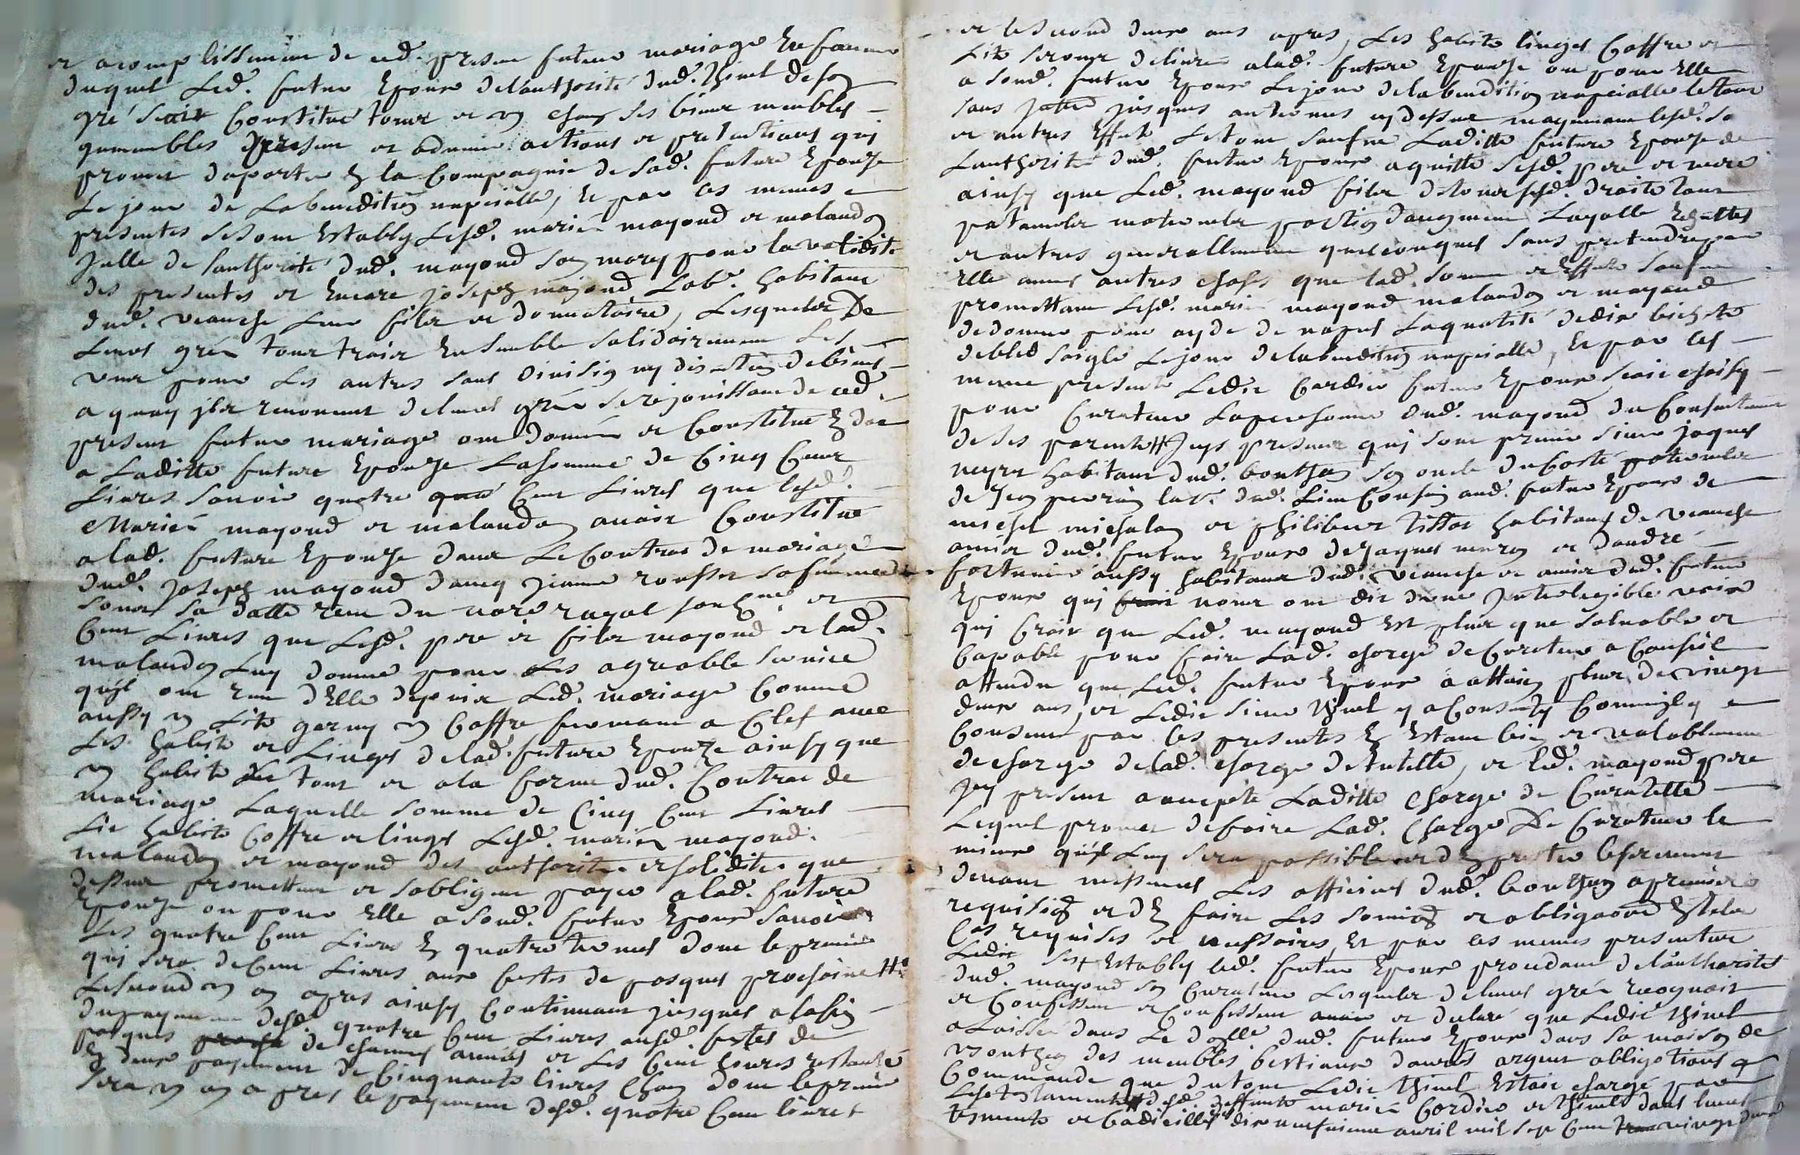 et acomplissement de ced. presant futeur mariage En faueur
duquel Led. futeur Epoux de lauthorité dud. Thinel de son
gré sest Constitué tous et un chun ses biens meubles
jmmeubles presant et aduenir actions et pretentions quj
promet daporter En la Compagnie de sad. future Epouze
Le jour de La benediction nupcialle, Et par ces mesmes
presantes se sont Estably Lesd. mariés mayoud et malandon
Jcelle de lauthorité dud. mayoud son mary pour la validité
des presantes et Encore joseph mayoud Lab. habitant
dud. veauche Leur fils et donnataire, Lesquels De
Leurs grés tous trois Ensemble solidairement Les
uns pour Les autres sans diuision ny discution de biens
a quoy jls renoncent de leurs grés se rejouissant de ced.
presant futeur mariage ont donné et Constitué En dot
a Laditte future Epouze La somme de Cinq Cent
Liures sauoir quatre Cent Liures que lesd.
Mariés mayoud et malandon auoit Constitué
a lad. future Epouze dans Le Contrat de mariage
dud. joseph mayoud dauec jeanne rousset sa femme
sous sa datte receu du nore rayal et
Cent Liures que Lesd. pere et fils mayoud et lad.
malandon Luy donne pour Les agreable seruice
quil ont receu dElle depuis Led. mariage Comme
aussy un Lit garny un Coffre fermant a Clef auec
Les habits et Linges de lad. future Epouze ainsy que
un habits Le tout et a la forme dud. Contrat de
mariage Laquelle somme de Cinq Cent Liures
Lit habits Coffre et linges Lesd. mariés mayoud
malandon et mayoud des authorité et solidité que
dessus promettent et sobligent payer a lad. future
Epouze ou pour Elle a sond. futeur Epoux sauoir
Les quatre Cent Liures En quatre termes dont le premier
quj sera de Cent Liures aux festes de pasques prochaine
Le second un an apres ainsy Continuant jusques a la fin
du payement desd. quatre Cent Liures ausd. festes de
pasques de chaques années et Les Cent Liures restante
En deux payement de Cinquante liures Chun dont le premier
sera un an apres le payement desd. quatre Cent liures
et le second deux ans apres, Les habits linges Coffre et
Lit seront deliurés a lad. future Epouze ou pour Elle
a sond. futeur Epoux Le jour de la benediction nupcialle le tout
sans jusques au termes cy dessus moyennant lesd. so
et autres Effets Le tout Laditte future Epouze de
Lauthorité dud. futeur Epoux aquitte sesd. pere et mere
ainsy que Led. mayoud fils de tous sesd. droits tant
paternels maternels portion daugment Legalle
et autres generallement quelconques sans pretendre
Elle autres choses que lad. somme et Effets
promettant Lesd. mariés mayoud malandon et mayoud
de donner pour ayde de nopces La quantité de dix bichets
de bled soigle Le jour de la benediction nupcialle, Et par les
mesme presante Ledit Cordier futeur Epoux, sest choisy
pour Curateur La personne dud. mayoud du Consentement
de ses parents jcy presant quj sont premier sieur jaques
neyret habitant dud. bonthon son oncle du Costé paternelle
de jean perrin lab. dud. Lieu Cousin aud. futeur Epoux de
michel michalon et philibert tissot habitans de veauche
amis dud. futeur Epoux de jaques et dandré
fortunier aussy habitans dud. veauche et amis dud. futeur
Epoux quj nous ont dit dune jntelegible voix
quj Croit que Led. mayoud Est plus que soluable et
Capable pour faire Lad. charge de Curateur a Conseil
attendu que Led. futeur Epoux a attain plus de vingt
deux ans, et Ledit sieur Thinel y a Consenty
Consent par les presantes En Estant bien et valablement
de charge de lad. charge de tutelle, et led. mayoud pere
jcy presant a accepté Laditte charge de Curatelle
Lequel promet de faire Lad. Charge De Curateur le
mieux quil Luy sera possible et dEn prester le serment
deuant messieurs Les officiers dud. bonthon a premiere
requision et dEn faire Les sommions et obligaons En tels
Cas requises et necessaires, Et par les mesmes presantes
Ledit sest Estably led. futeur Epoux procedant de lauthorité
dud. mayoud son Curateur Lesquels de leurs grés recognoit
et Confessent et Confessent et declaré que Ledit Thinel
a Laissé dans Le d'olle dud. futeur Epoux dans sa maison de
bonthon des meubles bestiaux danrés argent obligations
Commande que du tout Ledit Thinel Estoit chargé par
Les testaments desd. deffunts mariés Cordier et Thinel dans leurs
testaments et Codicilles dix neufuiesme auril mil sept Cent vingt deux